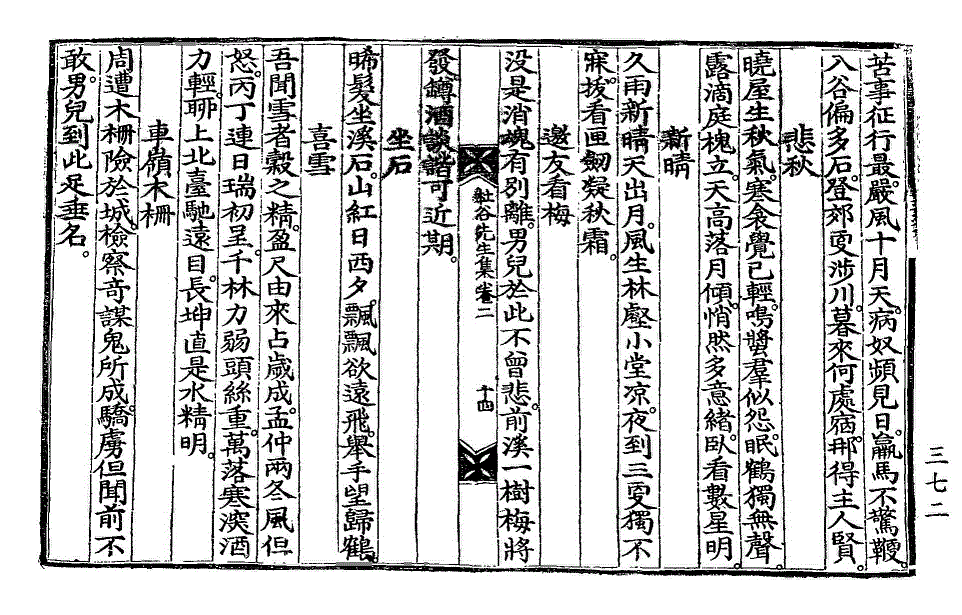 苦事征行最嚴風十月天病奴頻見日羸馬不驚鞭
入谷偏多石登郊更涉川暮來何處宿那得主人賢
悲秋
曉屋生秋氣寒衾覺已輕鳴螿羣似怨眠鶴獨無聲
露滴庭槐立天高落月傾悄然多意緖臥看數星明
新晴
久雨新晴天出月風生林壑小堂凉夜到三更獨不
寐拔看匣劒凝秋霜
邀友看梅
没是消魂有别離男兒於此不曾悲前溪一樹梅將
杜谷先生集卷二
十四
發罇酒談諧可近期
坐石
晞髮坐溪石山紅日西夕飄飄欲遠飛擧手望歸鶴
喜雪
吾聞雪者穀之精盈尺由來占歲成孟仲兩冬風但
怒丙丁連日瑞初呈千林力弱頭絲重萬落寒深酒
力輕聊上北臺馳遠目長坤直是水精明
車嶺木柵
周遭木柵險於城檢察奇謀鬼所成驕虜但聞前不
敢男兒到此足垂名
三七二